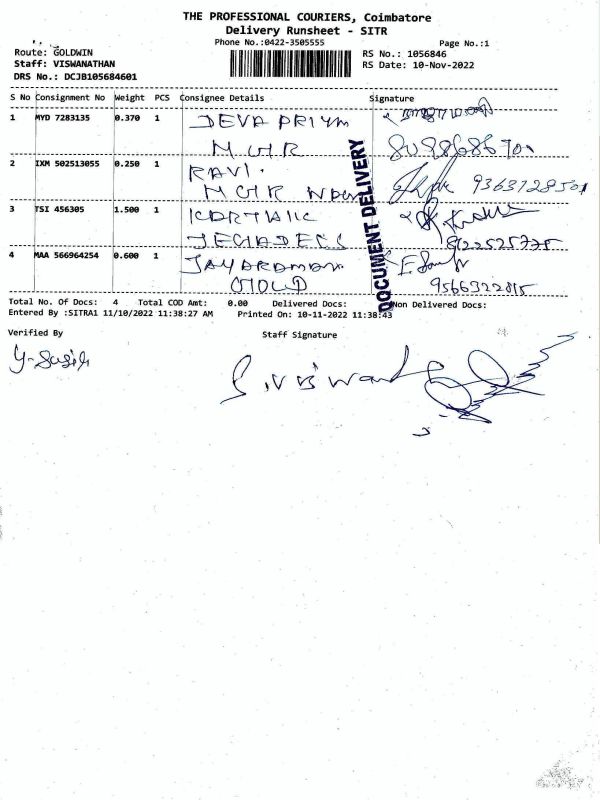 THE PROFESSIONAL COURIERS, Coimbatore
Delivery Runsheet - SITR
Phone No.:0422-3505555
Page No.:1
Route: GOLDWIN
RS No.: 1056846
Staff: VISWANATHAN
RS Date: 10-Nov-2022
DRS No.: DCJB105684601
S No Consignment No Weight PCS Consignee Details Signature
1 MYD 7283135 0.370 1 DEVA PRIYA
MGR
2 IXM 502513055 0.250 1 RAVI.
MGR 9363728501
3 TSI 456305 1.500 1 KARTHIK
8122525775
4 MAA 566964254 0.600 1 JAYARAMAN
9566322815
DOCUMENT DELIVERY
Total No. Of Docs: 4 Total COD Amt: 0.00 Delivered Docs: Non Delivered Docs:
Entered By :SITRA1 11/10/2022 11:38:27 AM Printed On: 10-11-2022 11:38:43
Verified By Staff Signature